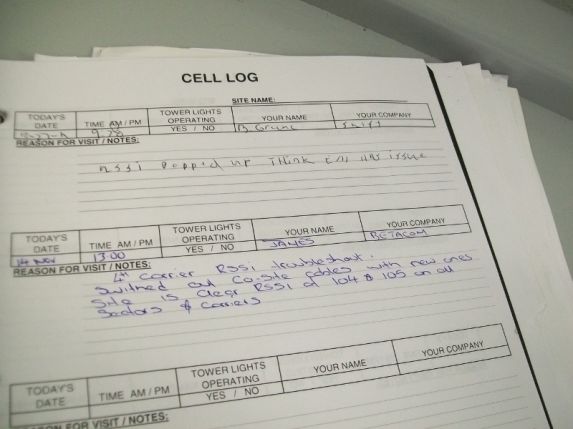 CELL LOG
SITE NAME:
TODAY'S DATE TIME AM / PM 9:28 TOWER LIGHTS OPERATING YES / NO YOUR NAME YOUR COMPANY
REASON FOR VISIT / NOTES:
rssi popped up Think issue
TODAY'S DATE 14 NOV TIME AM / PM 13:00 TOWER LIGHTS OPERATING YES / NO YOUR NAME JAMES YOUR COMPANY BETACOM
REASON FOR VISIT / NOTES:
4th Carrier RSSI troubleshoot.
Switched out Co-site cables with new ones
Site is Clear RSSI at 104 & 105 on all
Sectors & Carriers
TODAY'S DATE TIME AM / PM TOWER LIGHTS OPERATING YES / NO YOUR NAME YOUR COMPANY
REASON FOR VISIT / NOTES: